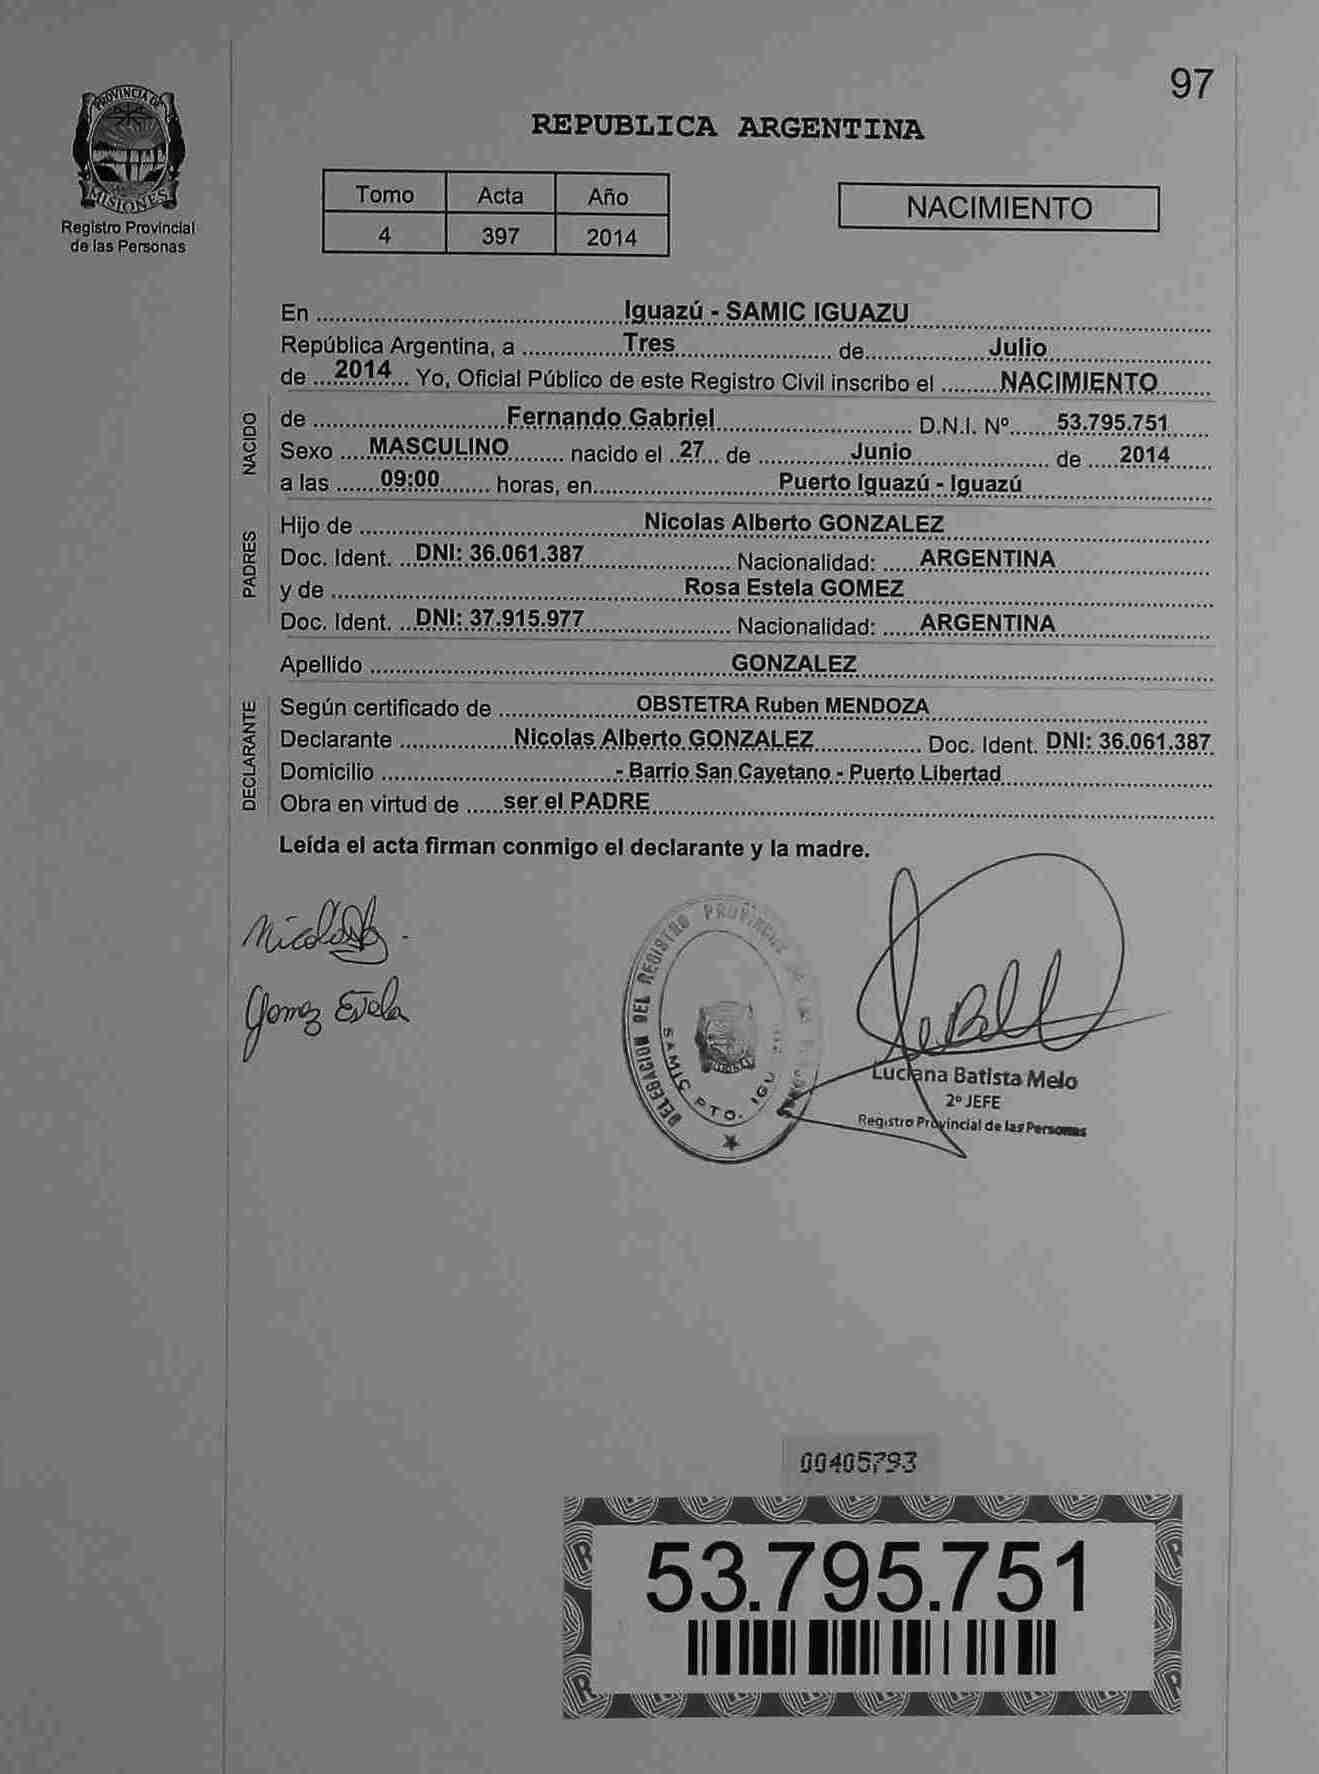 97
PROVINCIA DE
MISIONES
Registro Provincial
de las Personas
REPUBLICA ARGENTINA
Tomo Acta Año
4 397 2014
NACIMIENTO
En Iguazú - SAMIC IGUAZU
República Argentina, a Tres de Julio
de 2014 Yo, Oficial Público de este Registro Civil inscribo el NACIMIENTO
NACIDO
de Fernando Gabriel D.N.I. Nº 53.795.751
Sexo MASCULINO nacido el 27 de Junio de 2014
a las 09:00 horas, en Puerto Iguazú - Iguazú
PADRES
Hijo de Nicolas Alberto GONZALEZ
Doc. Ident. DNI: 36.061.387 Nacionalidad: ARGENTINA
y de Rosa Estela GOMEZ
Doc. Ident. DNI: 37.915.977 Nacionalidad: ARGENTINA
Apellido GONZALEZ
DECLARANTE
Según certificado de OBSTETRA Ruben MENDOZA
Declarante Nicolas Alberto GONZALEZ Doc. Ident. DNI: 36.061.387
Domicilio - Barrio San Cayetano - Puerto Libertad
Obra en virtud de ser el PADRE
Leída el acta firman conmigo el declarante y la madre.
Gomez Estela
DELEGACION DEL REGISTRO PROVINCIAL DE LAS
SAMIC PTO. IGU
Luciana Batista Melo
2º JEFE
Registro Provincial de las Personas
00405793
53.795.751